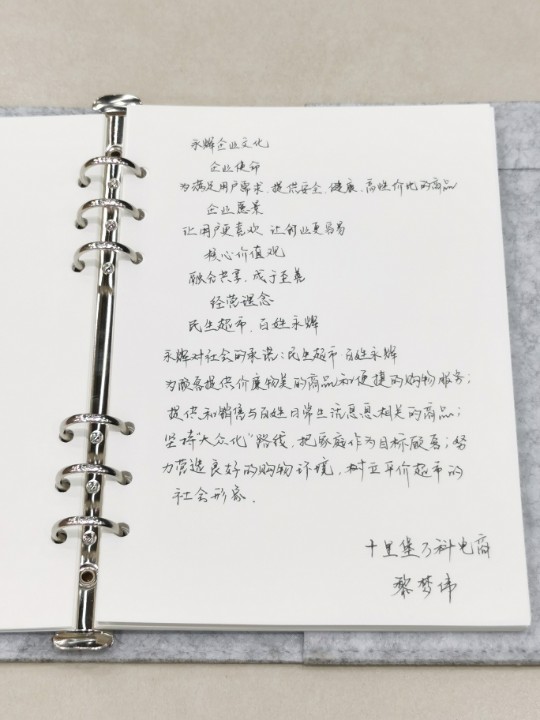 永辉企业文化
企业使命
为满足用户需求、提供安全、健康、高性价比的商品
企业愿景
让用户更喜欢 让创业更容易
核心价值观
融合共享、成于至善
经营理念
民生超市、百姓永辉
永辉对社会的承诺：民生超市 百姓永辉
为顾客提供价廉物美的商品和便捷的购物服务；
提供和销售与百姓日常生活息息相关的商品；
坚持“大众化”路线，把家庭作为目标顾客；努
力营造良好的购物环境，树立平价超市的
社会形象。
十里堡乃科电商
黎梦伟